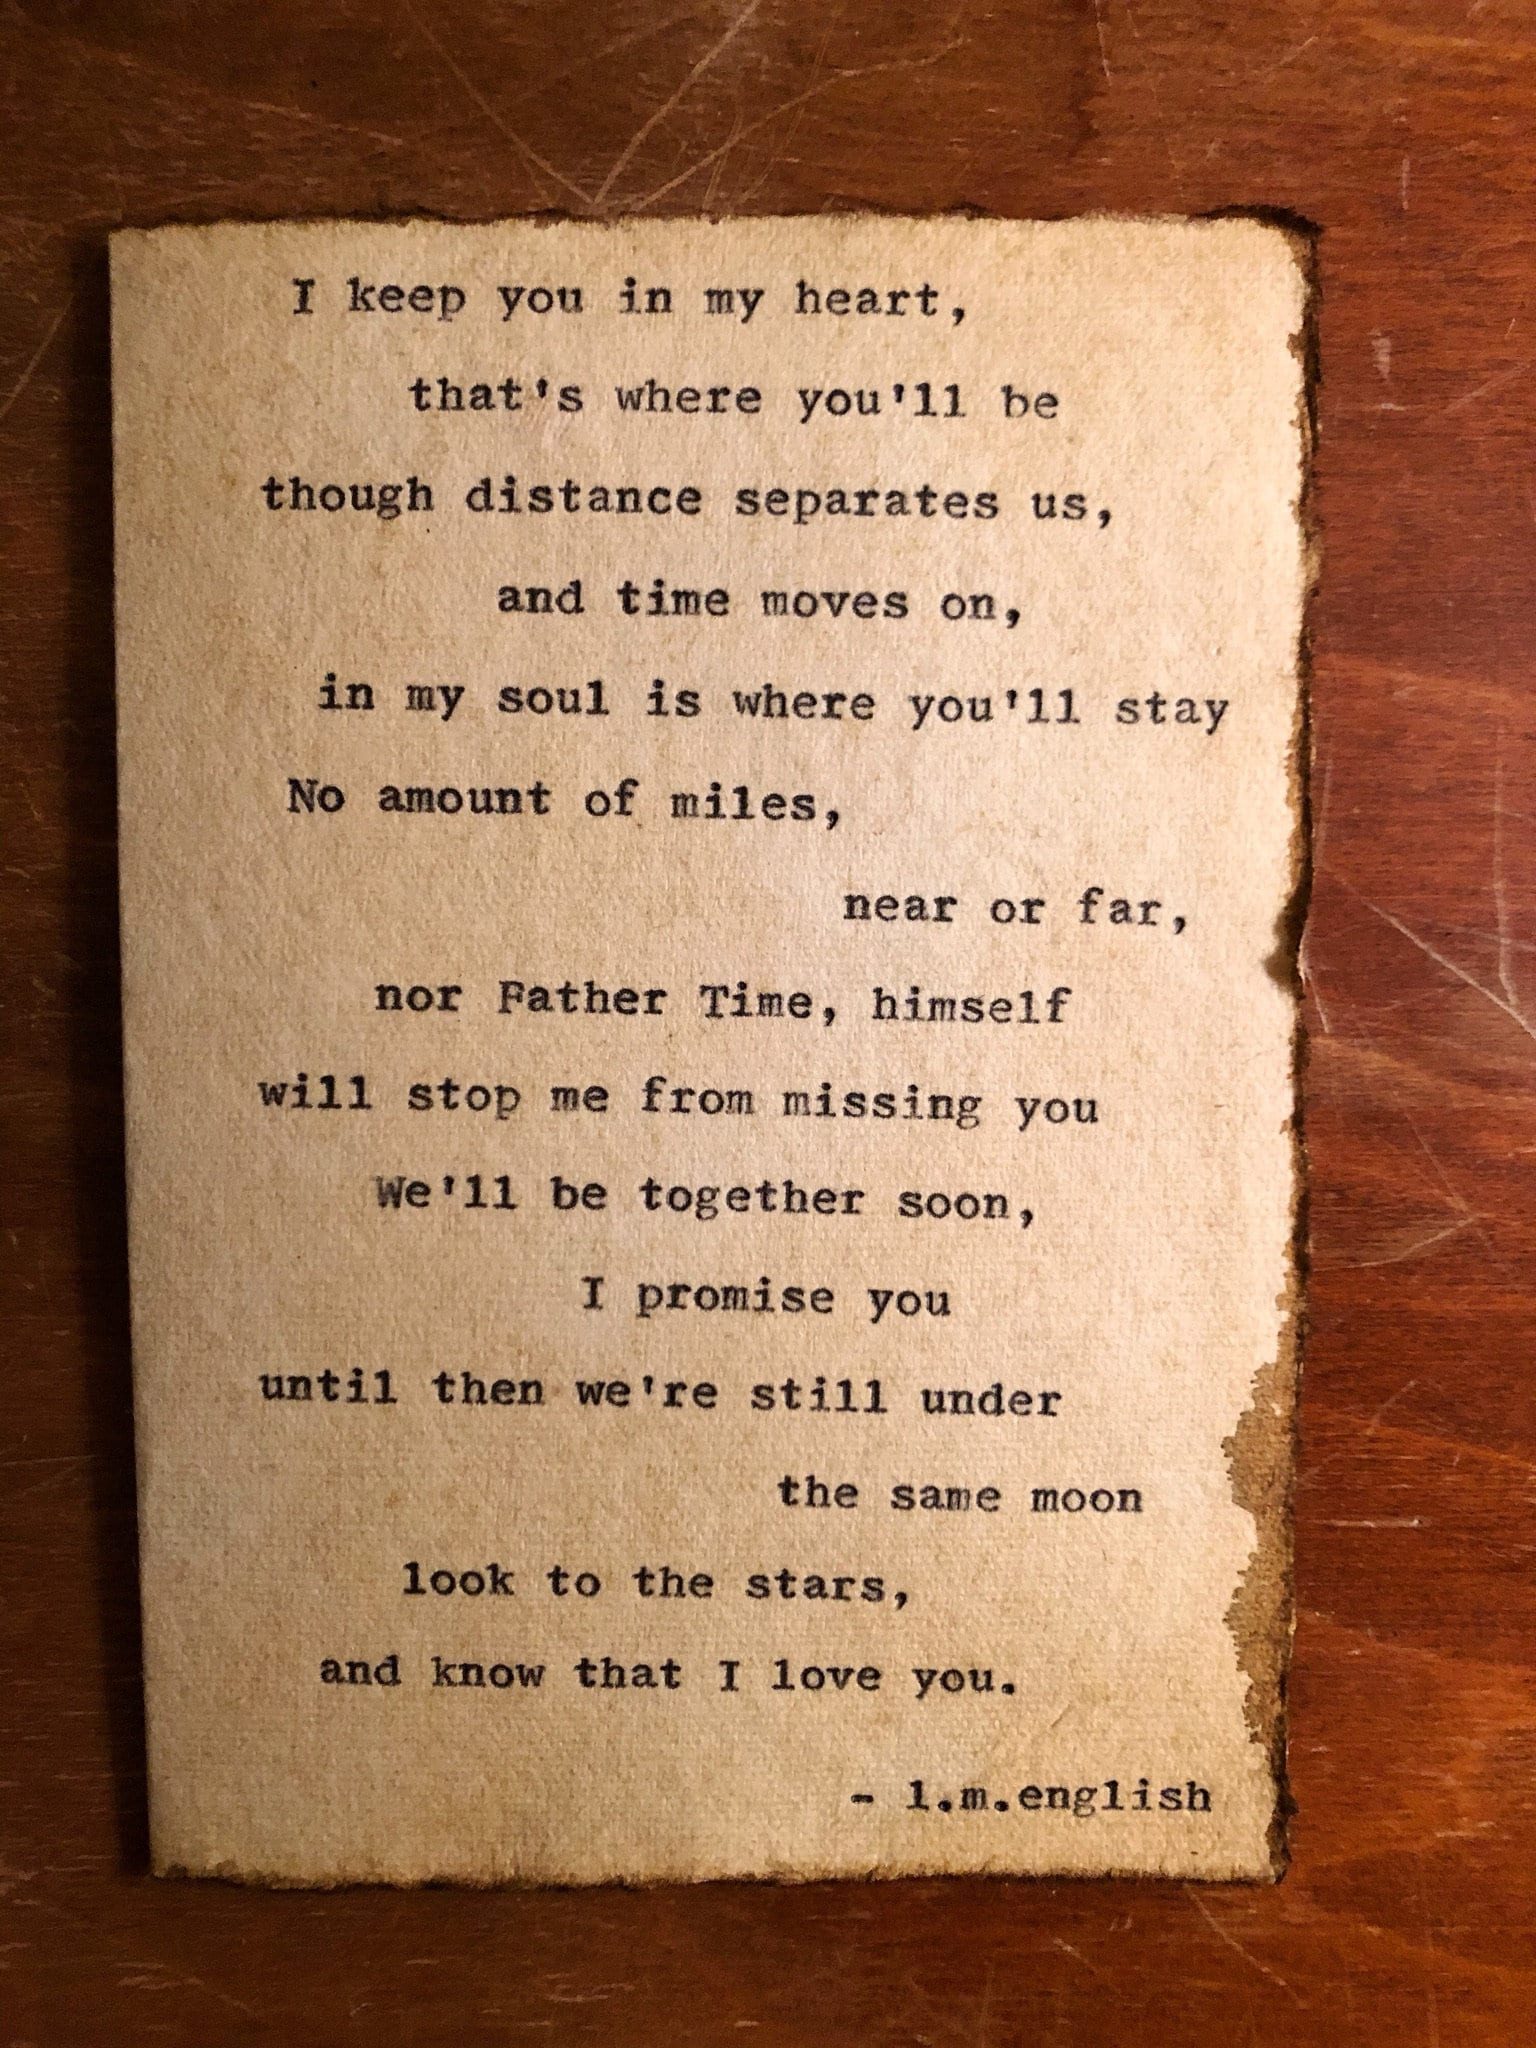 I keep you in my heart,
that's where you'll be
though distance separates us,
and time moves on,
in my soul is where you'll stay
No amount of miles,
near or far,
nor Father Time, himself
will stop me from missing you
We'll be together soon,
I promise you
until then we're still under
the same moon
look to the stars,
and know that I love you.
- l.m.english